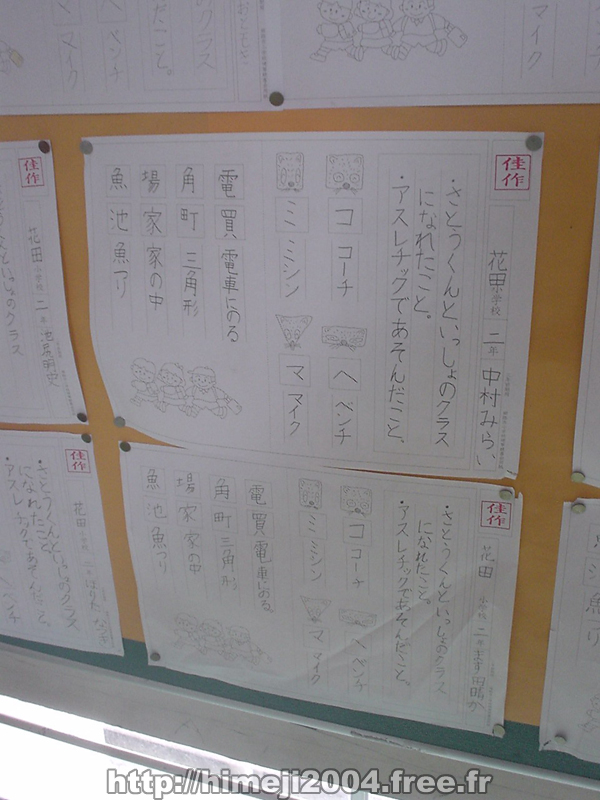 マイク
ベンチ
たこと。
のクラス
佳作
花田小学校 二年 中村みらい
・さとうくんといっしょのクラス
になれたこと。
・アスレチックであそんだこと、
コ コーチ
ヘ ベンチ
ミ ミシン
マ マイク
電 買 電車にのる
角 町 三角形
場 家 家の中
魚 池 魚つり
佳作
花田小学校 二年
といっしょのクラス
佳作
花田小学校 二年
・さとうくんといっしょのクラス
になれたこと。
・アスレチックであそんだこと。
コ コーチ
ヘ ベンチ
ミ ミシン
マ マイク
電 買 電車にのる
角 町 三角形
場 家 家の中
魚 池 魚つり
佳作
花田小学校
・さとうくんといっしょのクラス
になれたこと。
・アスレチックであそんだこと。
ベンチ
魚つり
http://himeji2004.free.fr